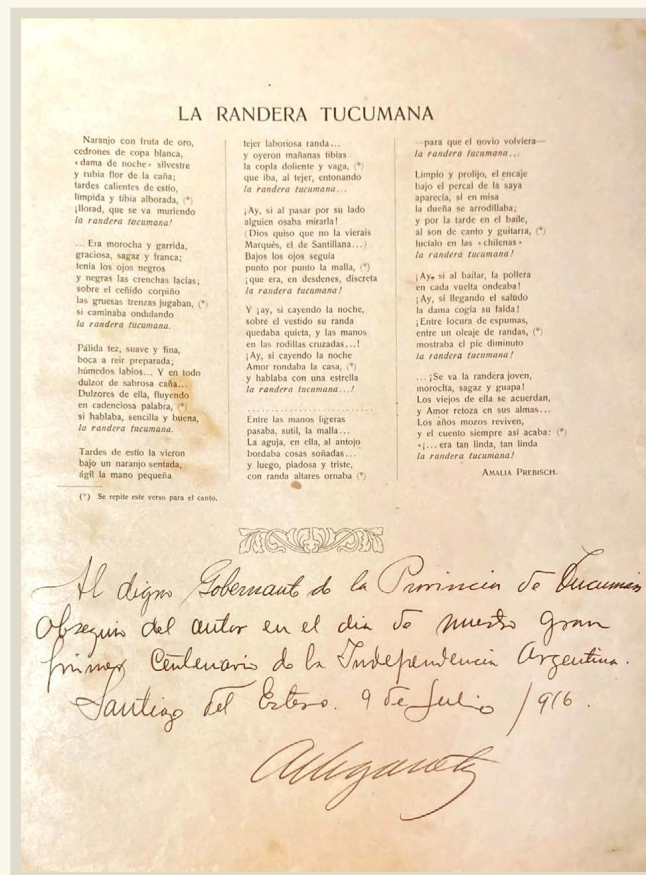 LA RANDERA TUCUMANA
Naranjo con fruta de oro,
cedrones de copa blanca,
«dama de noche» silvestre
y rubia flor de la caña;
tardes calientes de estío,
límpida y tibia alborada, (*)
¡llorad, que se va muriendo
la randera tucumana!
... Era morocha y garrida,
graciosa, sagaz y franca;
tenía los ojos negros
y negras las crenchas lacias;
sobre el ceñido corpiño
las gruesas trenzas jugaban, (*)
si caminaba ondulando
la randera tucumana.
Pálida tez, suave y fina,
boca a reir preparada;
húmedos labios... Y en todo
dulzor de sabrosa caña...
Dulzores de ella, fluyendo
en cadenciosa palabra, (*)
si hablaba, sencilla y buena,
la randera tucumana.
Tardes de estío la vieron
bajo un naranjo sentada,
ágil la mano pequeña
(*) Se repite este verso para el canto.
tejer laboriosa randa...
y oyeron mañanas tibias
la copla doliente y vaga, (*)
que iba, al tejer, entonando
la randera tucumana...
¡Ay, si al pasar por su lado
alguien osaba mirarla!
(Dios quiso que no la vierais
Marqués, el de Santillana...)
Bajos los ojos seguía
punto por punto la malla, (*)
¡que era, en desdenes, discreta
la randera tucumana!
Y ¡ay, si cayendo la noche,
sobre el vestido su randa
quedaba quieta, y las manos
en las rodillas cruzadas...!
¡Ay, si cayendo la noche
Amor rondaba la casa, (*)
y hablaba con una estrella
la randera tucumana...!
..............................
Entre las manos ligeras
pasaba, sutil, la malla...
La aguja, en ella, al antojo
bordaba cosas soñadas...
y luego, piadosa y triste,
con randa altares ornaba (*)
—para que el novio volviera—
la randera tucumana...
Limpio y prolijo, el encaje
bajo el percal de la saya
aparecía, si en misa
la dueña se arrodillaba;
y por la tarde en el baile,
al son de canto y guitarra, (*)
lucíalo en las «chilenas»
la randera tucumana!
¡Ay, si al bailar, la pollera
en cada vuelta ondeaba!
¡Ay, si llegando el saludo
la dama cogía su falda!
¡Entre locura de espumas,
entre un oleaje de randas, (*)
mostraba el pie diminuto
la randera tucumana!
... ¡Se va la randera joven,
morocha, sagaz y guapa!
Los viejos de ella se acuerdan,
y Amor retoza en sus almas...
Los años mozos reviven,
y el cuento siempre así acaba: (*)
«¡... era tan linda, tan linda
la randera tucumana!
AMALIA PREBISCH.
Al digno Gobernante de la Provincia de Tucumán
Obsequio del autor en el dia de nuestro gran
primer Centenario de la Independencia Argentina.
Santiago del Estero. 9 de Julio /916.